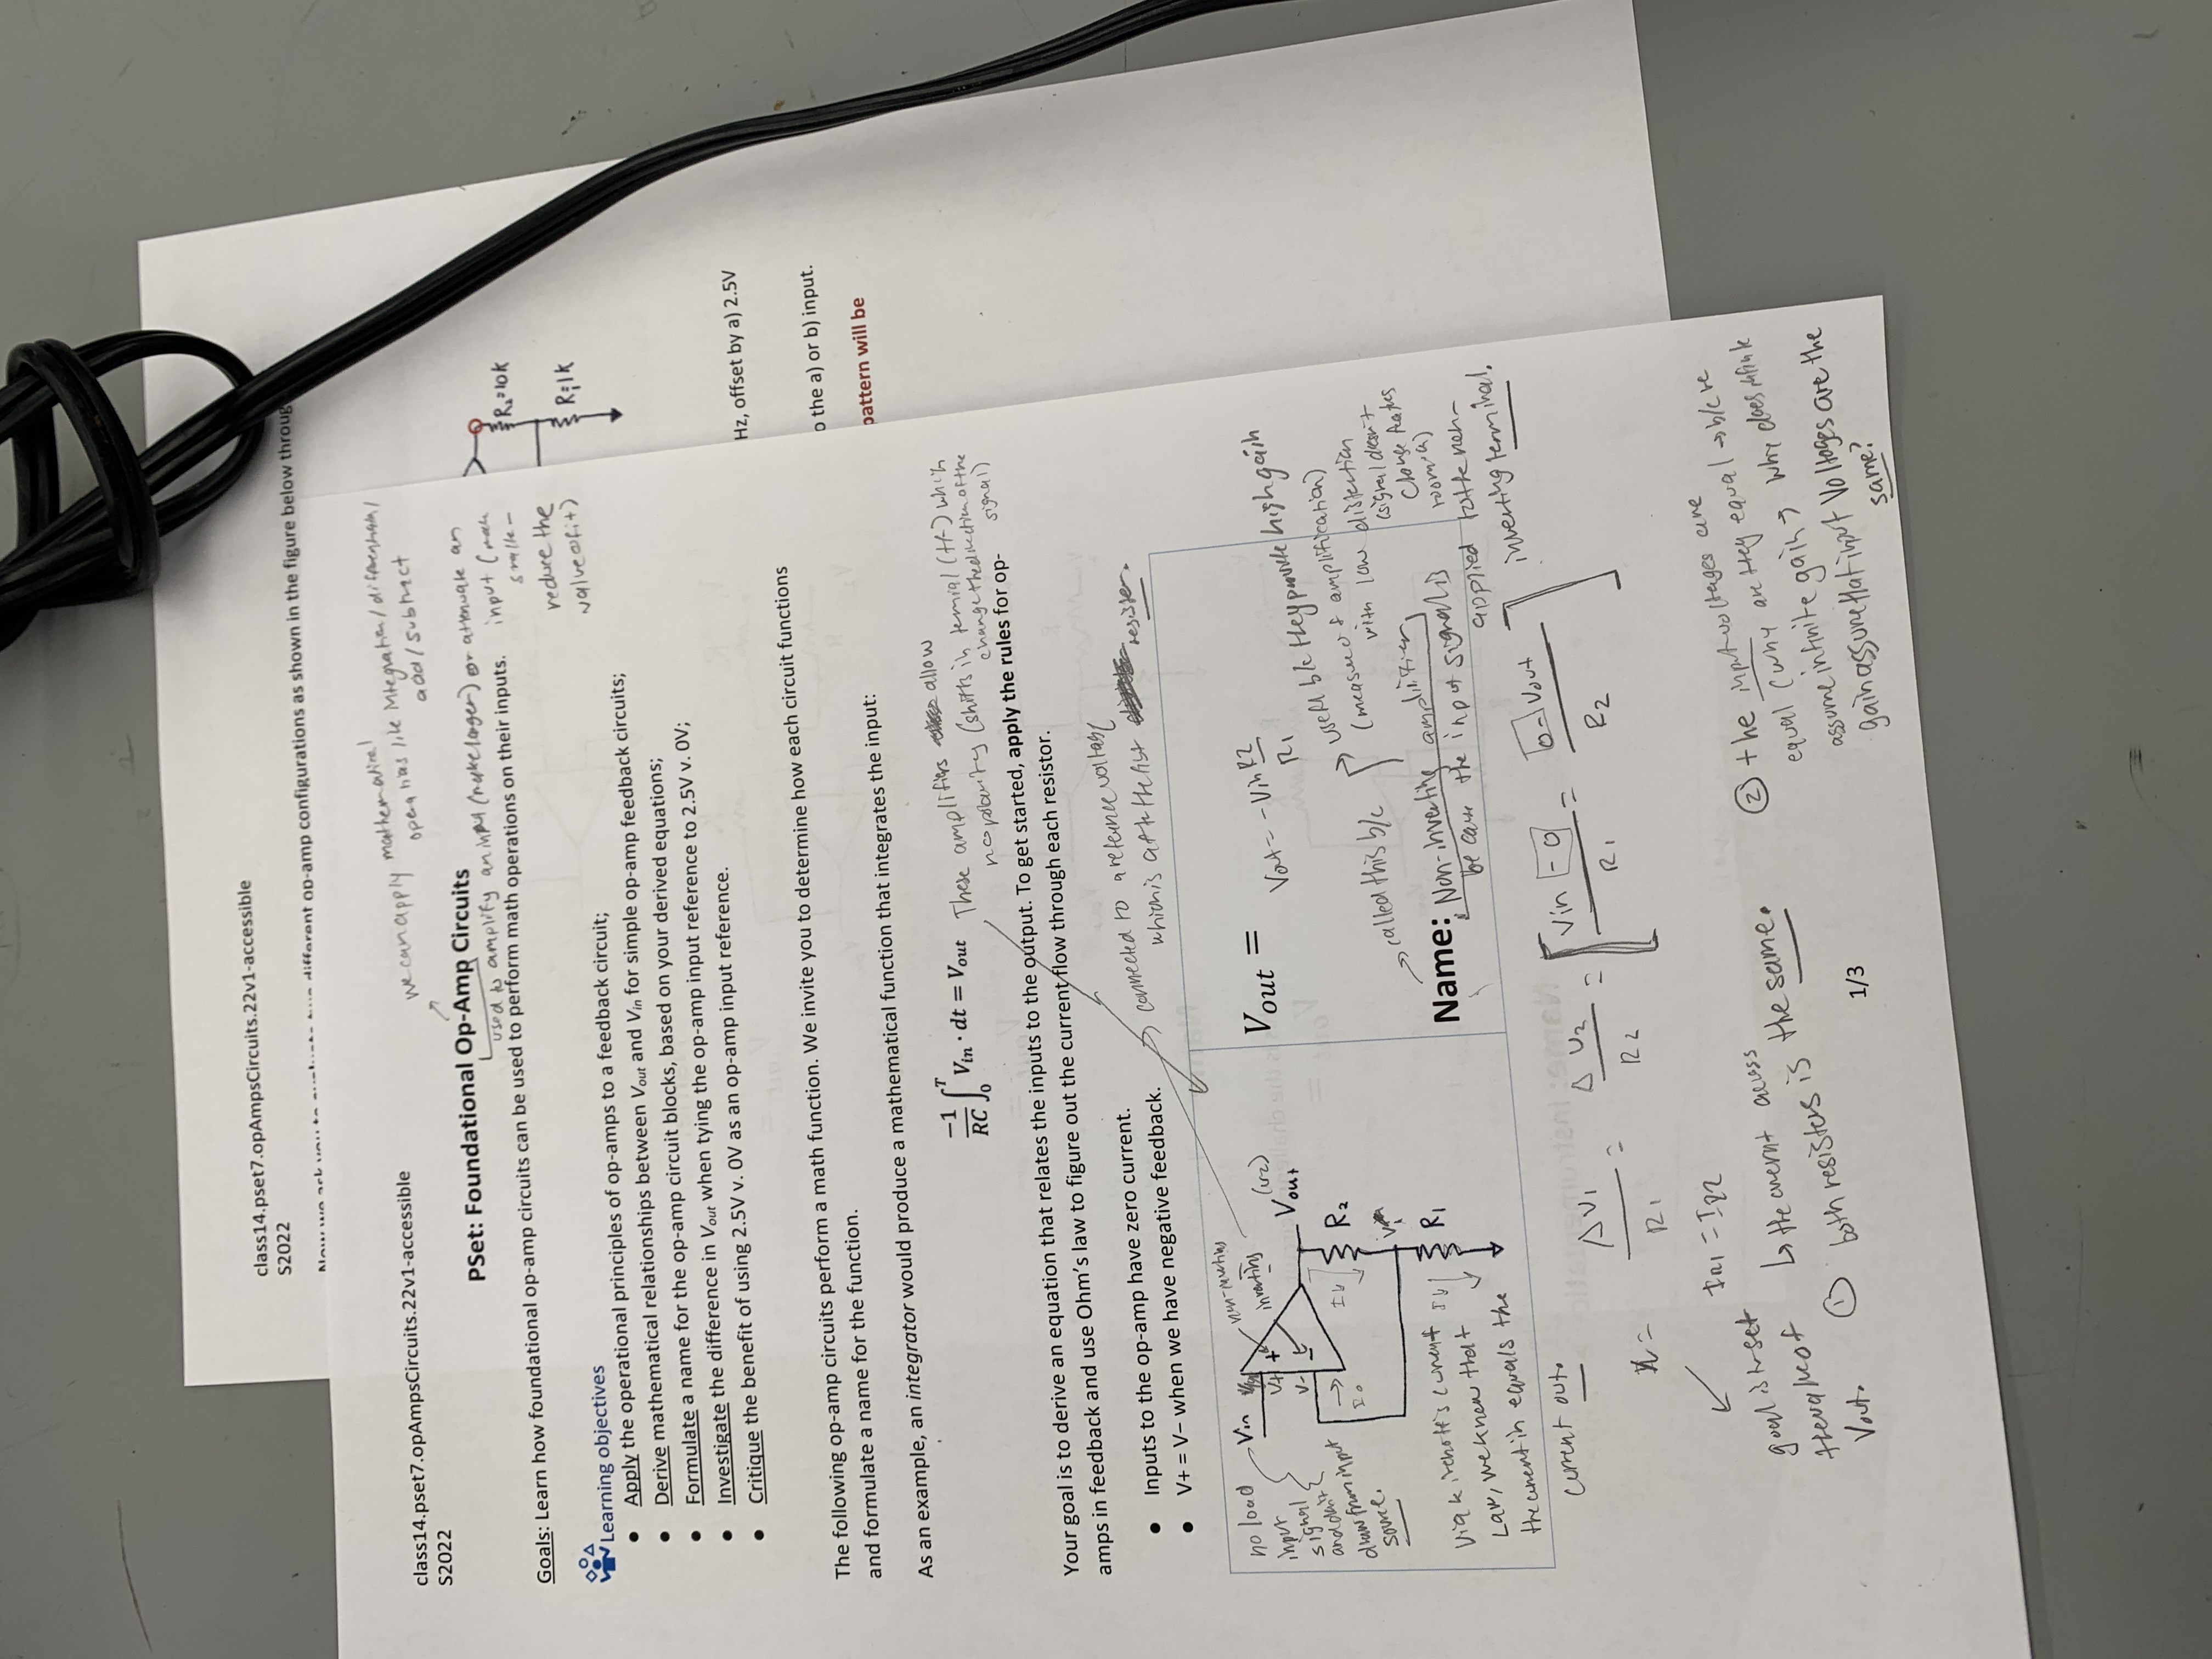 class14.pset7.opAmpsCircuits.22v1-accessible
S2022
different op-amp configurations as shown in the figure below throug
R₂=10K
R₁=1K
Hz, offset by a) 2.5V
o the a) or b) input.
pattern will be
class14.pset7.opAmpsCircuits.22v1-accessible
S2022
we can apply mathematical
operations like integration/differentiation/
add/subtract
PSet: Foundational Op-Amp Circuits
used to amplify an input (make larger) or attenuate an
input (make
smaller -
reduce the
value of it)
Goals: Learn how foundational op-amp circuits can be used to perform math operations on their inputs.
Learning objectives
• Apply the operational principles of op-amps to a feedback circuit;
• Derive mathematical relationships between Vout and Vin for simple op-amp feedback circuits;
• Formulate a name for the op-amp circuit blocks, based on your derived equations;
• Investigate the difference in Vout when tying the op-amp input reference to 2.5V v. 0V;
• Critique the benefit of using 2.5V v. 0V as an op-amp input reference.
The following op-amp circuits perform a math function. We invite you to determine how each circuit functions
and formulate a name for the function.
As an example, an integrator would produce a mathematical function that integrates the input:
-1/RC ∫₀ᵀ Vin · dt = Vout
These amplifiers allow
no polarity (shifts in (+/-) which
change the direction of the
signal)
Your goal is to derive an equation that relates the inputs to the output. To get started, apply the rules for op-
amps in feedback and use Ohm's law to figure out the current flow through each resistor.
• Inputs to the op-amp have zero current.
• V+ = V− when we have negative feedback.
connected to a reference voltage
which is after the first resister.
no load
input
signal
and don't
draw from input
source.
Vin
V+
V-
+
-
non-inverting
inverting
(V2)
Vout
R₂
R₁
Vout =
Vout = -Vin R2/R1
used b/c they provide high gain
(measure of amplification)
with low distortion
(signal doesn't
change
called this b/c
Name: Non-inverting amplifier
because the input signal is
applied to the non-
inverting terminal.
Via kirchoff's current
Law, we know that
the current in equals the
current out.
ΔV₁/R₁ = ΔV₂/R₂ = [Vin - 0/R₁ = 0 - Vout/R₂]
IR1 = IR2
goal is to set
the value of
Vout.
↳ the current across
① both resisters is the same.
② the input voltages are
equal (why are they equal → b/c we
assume infinite gain → why does infinite
gain assure that input voltages are the
same?
1/3